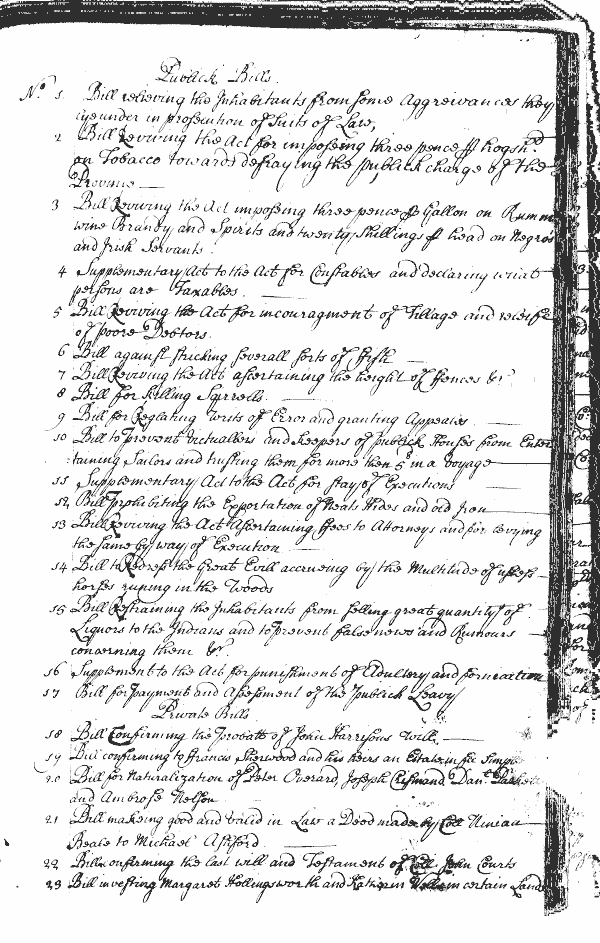 Publick Bills.
No. 1 Bill relieving the Inhabitants from some Aggreivances they
lye under in prosecution of Suits of Law,
2 Bill Reviving the Act for imposeing three pence p hogshd
on Tobacco towards defraying the publick charge of the
Province
3 Bill Reviving the Act imposing three pence p Gallon on Rumm
wine Brandy and Spirits and twenty shillings p head on Negros
and Irish Servants
4 Supplementary Act to the Act for Constables and declaring what
persons are Taxables
5 Bill Reviving the Act for incouragment of Tillage and releife
of poore Debtors.
6 Bill against stricking severall sorts of ffish
7 Bill Reviving the Act ascertaining the height of ffences &c
8 Bill for killing Sqirrells
9 Bill for Reglating writs of Error and granting Appeales
10 Bill to prevent victuallers and keepers of publick Houses from Enter
taining Sailors and trusting them for more then 5s in a voyage
11 Supplementary Act to the Act for stay of Executions
12 Bill prohibiting the Exportation of Neats Hides and old Iron
13 Bill Reviving the Act Ascertaining ffees to Attorneys and for levying
the same by way of Execution
14 Bill to Redress the Great Evill accrueing by the Multitude of useless
horses runing in the woods
15 Bill Restraining the Inhabitants from selling great quantitys of
Liquors to the Indians and to prevent false news and Rumours
concerning them &c.
16 Supplement to the Act for punishment of Adoultry and fornication
17 Bill for payment and Assessment of the publick Leavy
Private Bills
18 Bill Confirming the probate of John Harrisons will
19 Bill confirming to ffrancis Sherwood and his heirs an Estate in fee Simple
20 Bill for Naturalization of Peter Overard Joseph Danl.
and Ambrose Nelson
21 Bill makeing good and valid in Law a Deed made by Coll Ninian
Beale to Michael Ashford
22 Bill confirming the last will and Testament of Coll John Courts
23 Bill investing Margaret Hollingsworth and in certain Lands